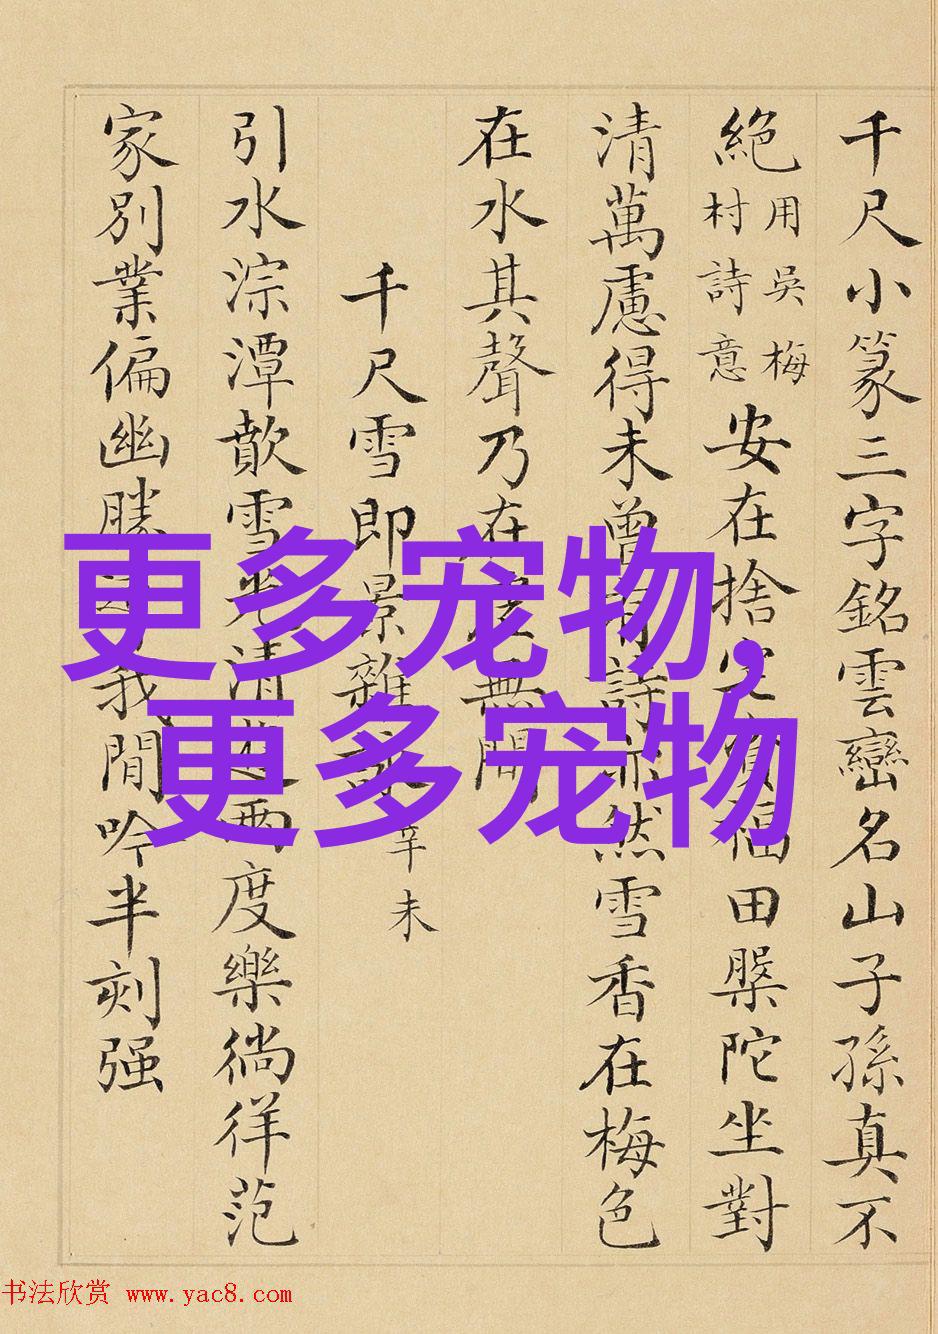 千尺小篆三字銘雲巒名山子孫真不
絶用吳梅村詩意安在捨田槃陀坐對
清萬慮得未曾有詩亦然雪香在梅色
在水其聲乃在無聞
千尺雪即景雜詠辛未
引水淙潭歕雪光清遊兩度樂徜徉范
家別業偏幽勝我閒吟半刻强
更多宠物,
更多宠物
书法欣赏 www.yac8.com